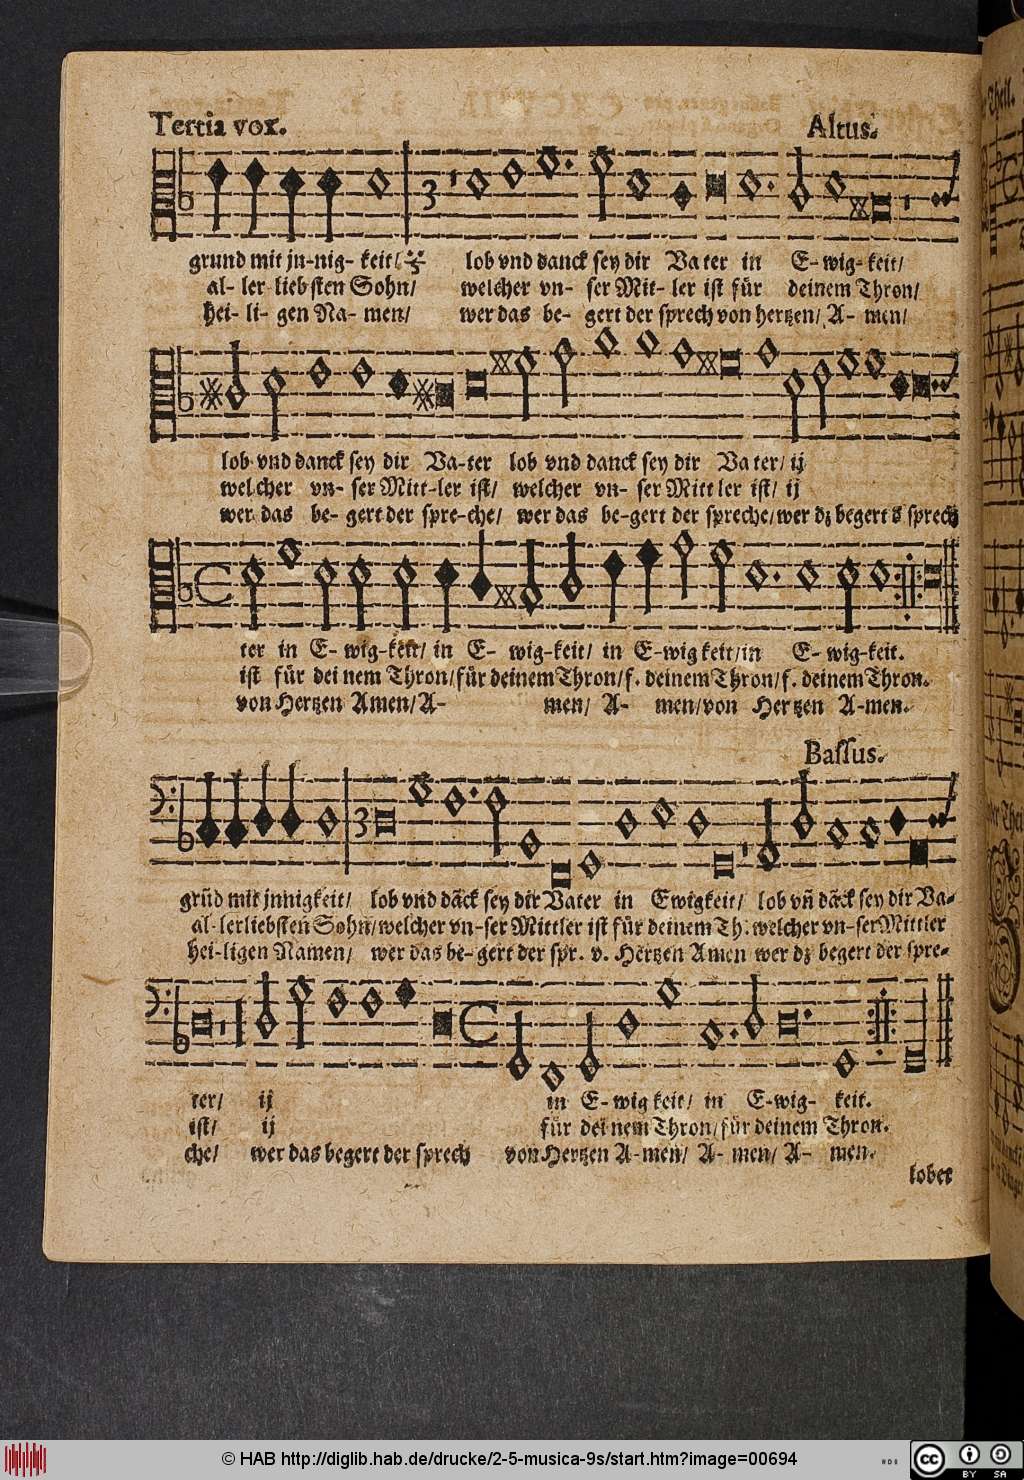 Tertia vox. Altus.
grund mit jn-nig- keit/
lob vnd danck sey dir Va ter in E- wig- keit/
al- ler lieb sten Sohn/ welcher vn- ser Mit- ler ist für deinem Thron/
hei- li- gen Na- men/ wer das be- gert der sprech von hertzen/ A- men/
lob vnd danck sey dir Va-ter lob vnd danck sey dir Va ter/ ij
welcher vn- ser Mitt-ler ist/ welcher vn- ser Mittler ist/ ij
wer das be- gert der spre-che/ wer das be-gert der spreche/wer dz begert d sprech
ter in E- wig-keit/ in E- wig-keit/ in E-wig keit/in E- wig-keit.
ist für dei nem Thron/für deinem Thron/ f. deinem Thron/ f. deinem Thron.
von Hertzen Amen/ A- men/ A- men/von Hertzen A-men.
Bassus.
grũd mit jnnigkeit/ lob vnd dãck sey dir Vater in Ewigkeit/ lob vñ dãck sey dir Va-
al-lerliebsten Sohn/welcher vn-ser Mittler ist für deinem Th. welcher vn-ser Mittler
hei-ligen Namen/ wer das be-gert der spr. v. Hertzen Amen wer dz begert der spre-
ter/ ij in E-wig keit/ in E-wig- keit.
ist/ ij für dei nem Thron/für deinem Thron.
che/ wer das begert der sprech von Hertzen A-men/ A- men/ A- men.
lobet
© HAB http://diglib.hab.de/drucke/2-5-musica-9s/start.htm?image=00694
cc BY SA